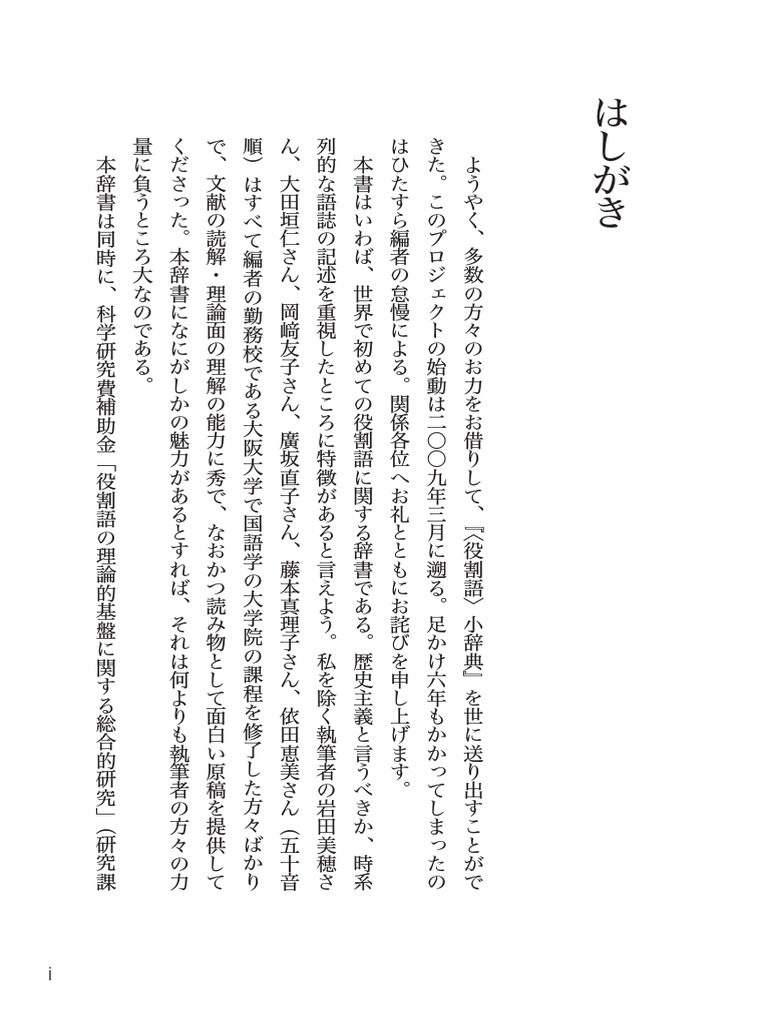 はしがき
　ようやく、多数の方々のお力をお借りして、『〈役割語〉小辞典』を世に送り出すことがで
きた。このプロジェクトの始動は二〇〇九年三月に遡る。足かけ六年もかかってしまったの
はひたすら編者の怠慢による。関係各位へお礼とともにお詫びを申し上げます。
　本書はいわば、世界で初めての役割語に関する辞書である。歴史主義と言うべきか、時系
列的な語誌の記述を重視したところに特徴があると言えよう。私を除く執筆者の岩田美穂さ
ん、大田垣仁さん、岡﨑友子さん、廣坂直子さん、藤本真理子さん、依田恵美さん（五十音
順）はすべて編者の勤務校である大阪大学で国語学の大学院の課程を修了した方々ばかり
で、文献の読解・理論面の理解の能力に秀で、なおかつ読み物として面白い原稿を提供して
くださった。本辞書になにがしかの魅力があるとすれば、それは何よりも執筆者の方々の力
量に負うところ大なのである。
　本辞書は同時に、科学研究費補助金「役割語の理論的基盤に関する総合的研究」（研究課
i